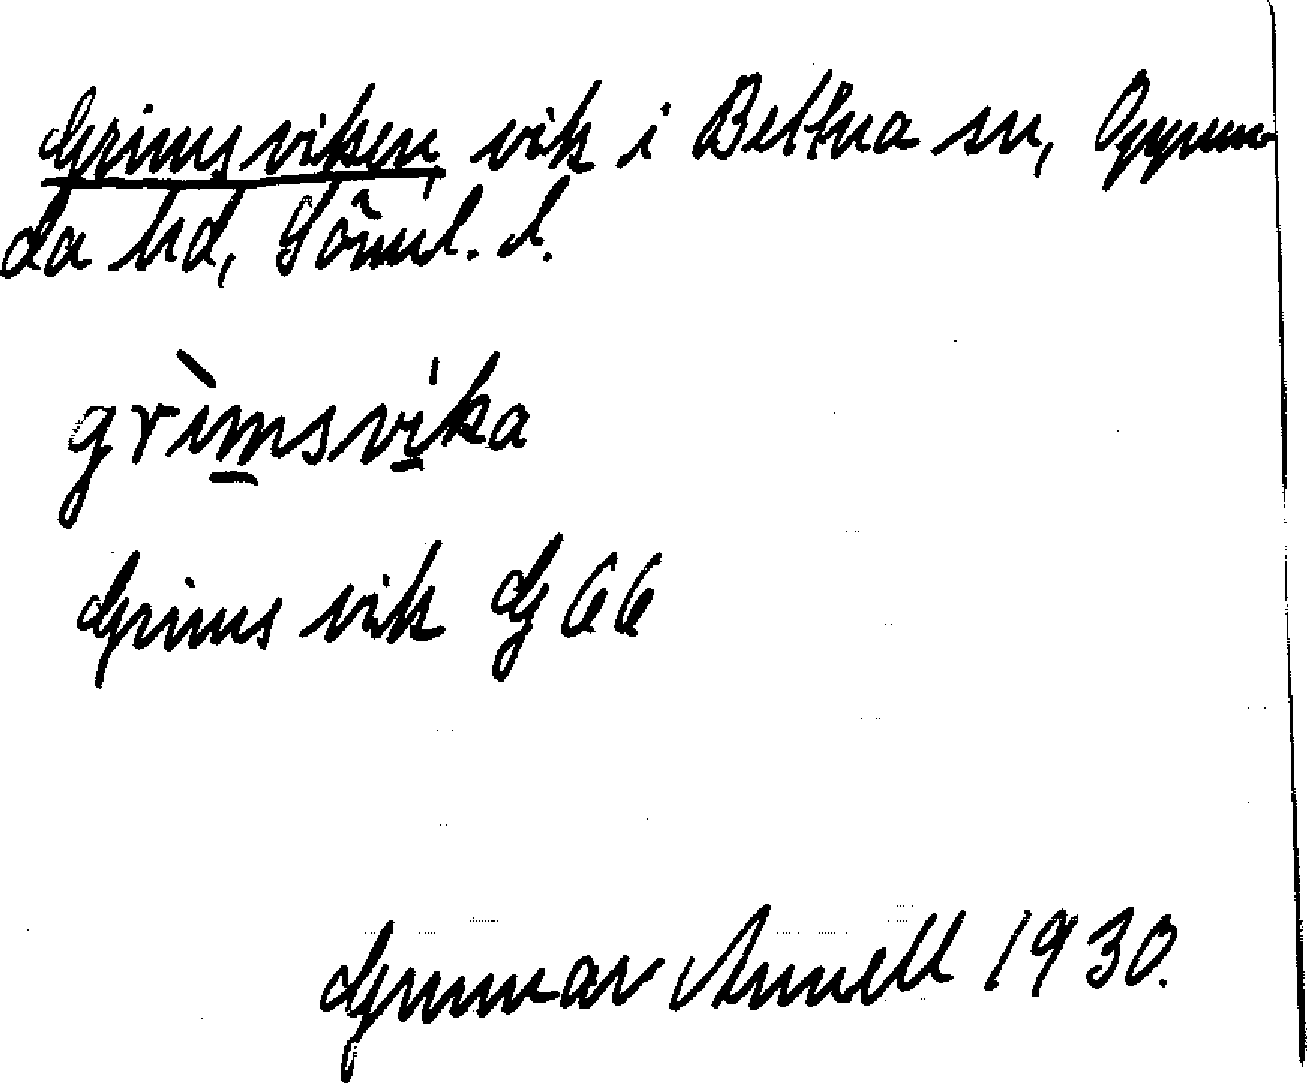 Grimsviken, vik i Bettna sn, Oppun-
da hd, Söml. l.
grìmsvika
Grims vik G 66
Gunnar Arnell 1930.